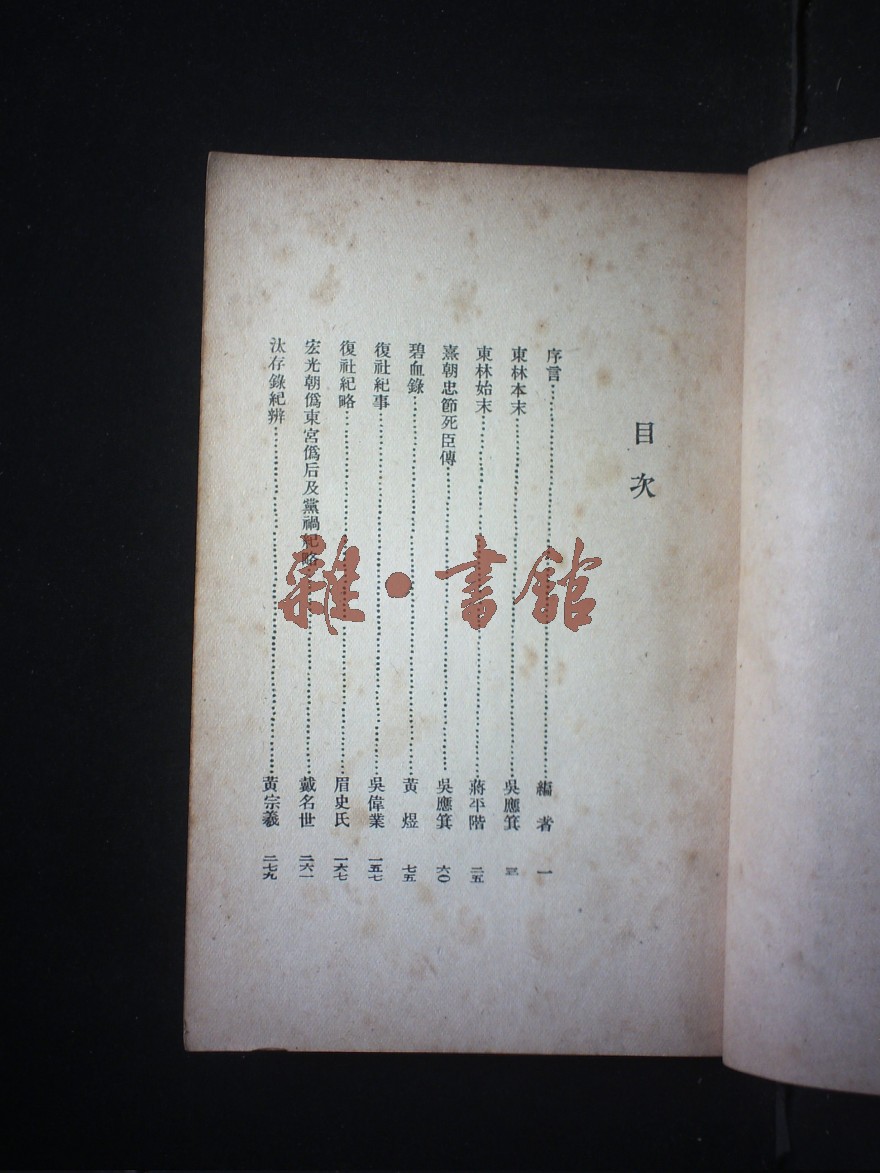 目次
序言 編者 一
東林本末 吳應箕
東林始末 蔣平階 二五
熹朝忠節死臣傳 吳應箕 六〇
碧血錄 黃煜 七五
復社紀事 吳偉業 一五七
復社紀略 眉史氏 一六七
宏光朝僞東宮僞后及黨禍紀略 戴名世 二六一
汰存錄紀辨 黃宗羲 二七九
雜·書館